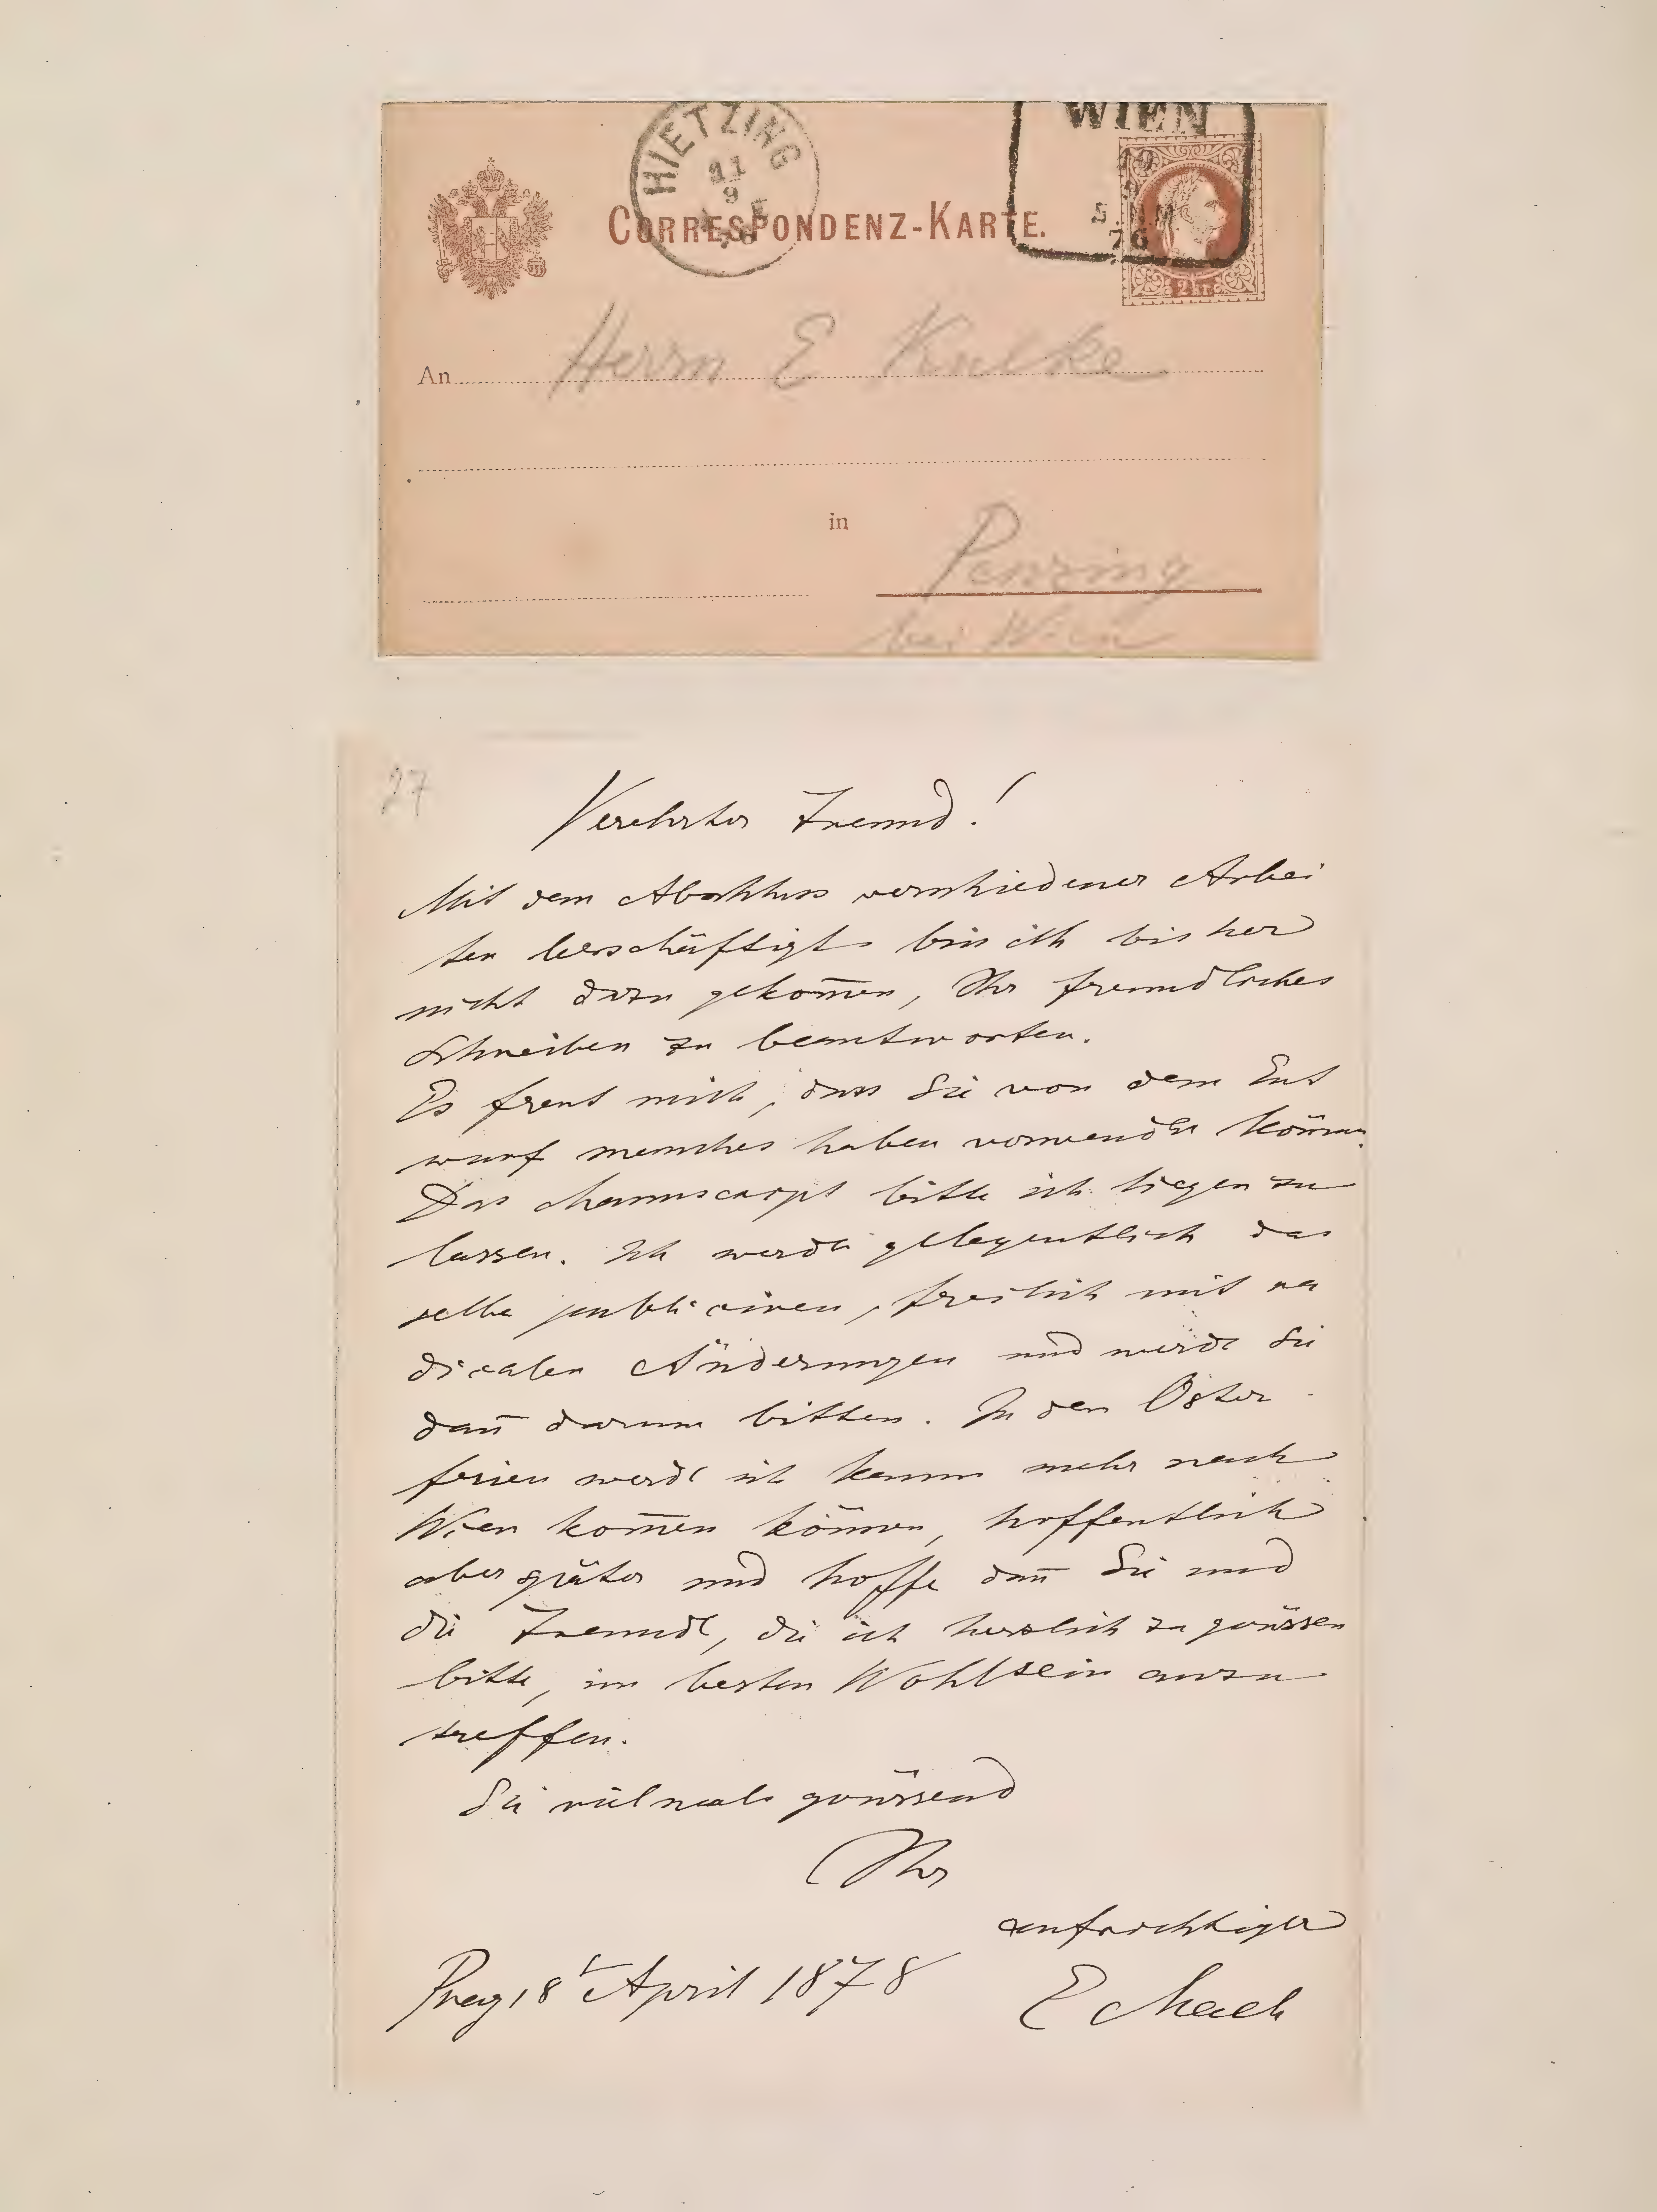 HIETZING
11
9
WIEN
10
9
5.NM
76
CORRESPONDENZ-KARTE.
2 kr.
An Herrn E Kulke
in Penzing
bei Wien
27
Verehrter Freund!
Mit dem Abschluss verschiedener Arbei
ten beschäftigt bin ich bisher
nicht dazu gekom̅en, Ihr freundliches
Schreiben zu beantworten.
Es freut mich, dass Sie von dem Ent
wurf manches haben verwenden können.
Das Manuscript bitte ich liegen zu
lassen. Ich werde gelegentlich das
selbe publiciren, freilich mit ra
dicalen Änderungen und werde Sie
dan̅ darum bitten. In den Oster
ferien werde ich kaum mehr nach
Wien kom̅en können, hoffentlich
aber später und hoffe dan̅ Sie und
die Freunde, die ich herzlich zu grüssen
bitte, im besten Wohlsein anzu
treffen.
Sie vielmals grüssend
Ihr
aufrichtiger
E Mach
Prag 18t April 1878